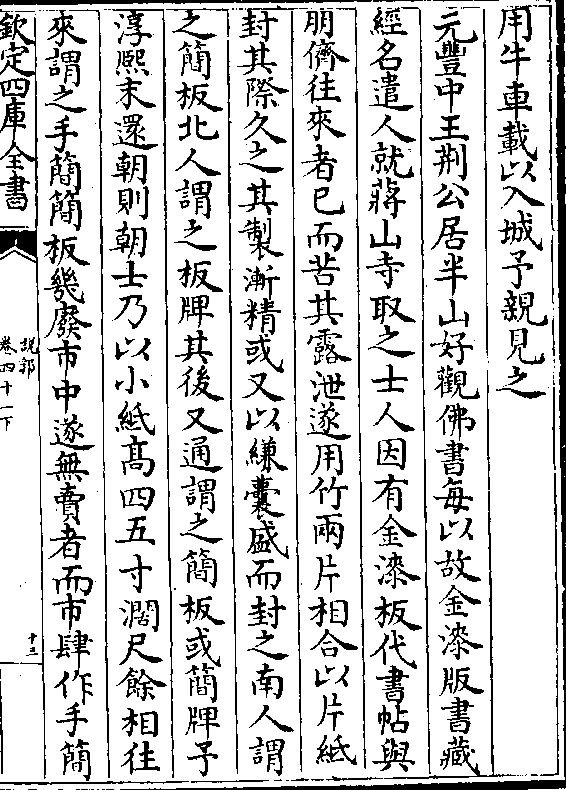 用牛車載以入城予親見之
元豐中王荆公居半山好觀佛書每以故金漆版書藏
經名遣人就蔣山寺取之士人因有金漆板代書帖與
朋儕往來者已而苦其露泄遂用竹兩片相合以片紙
封其際久之其製漸精或又以縑囊盛而封之南人謂
之簡板北人謂之板牌其後又通謂之簡板或簡牌予
淳熙末還朝則朝士乃以小紙髙四五寸濶尺餘相往
來謂之手簡簡板幾廢市中遂無賣者而市肆作手簡
欽定四庫全書
說郛
卷四十一下
十三